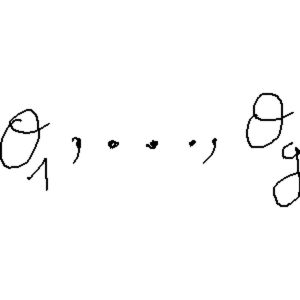 θ₁, . . . , θ_g